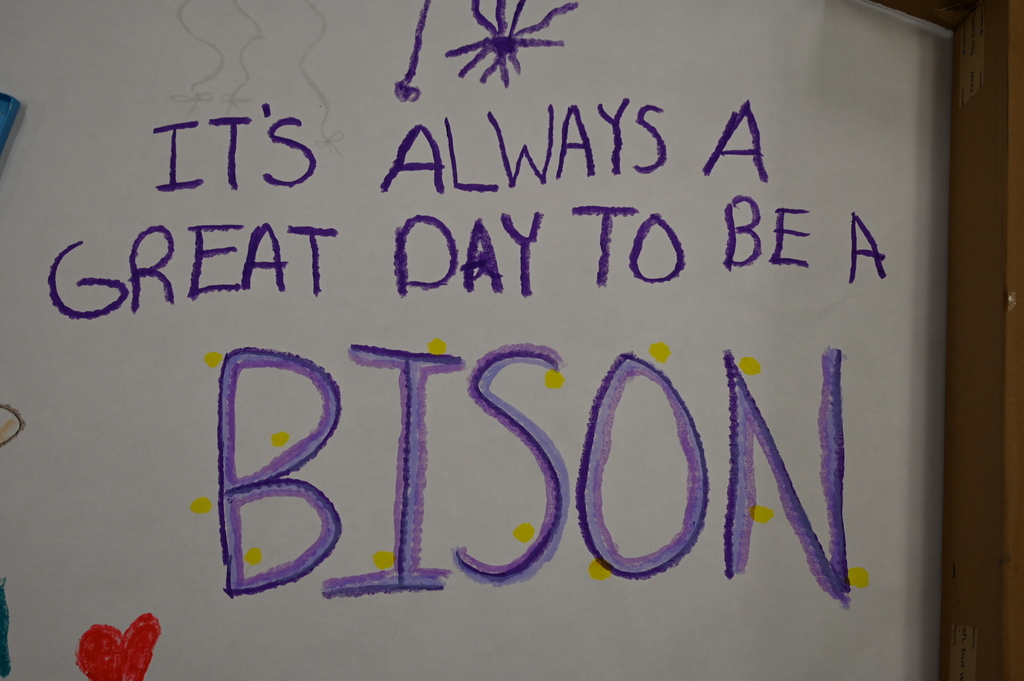 IT'S ALWAYS A
GREAT DAY TO BE A
BISON